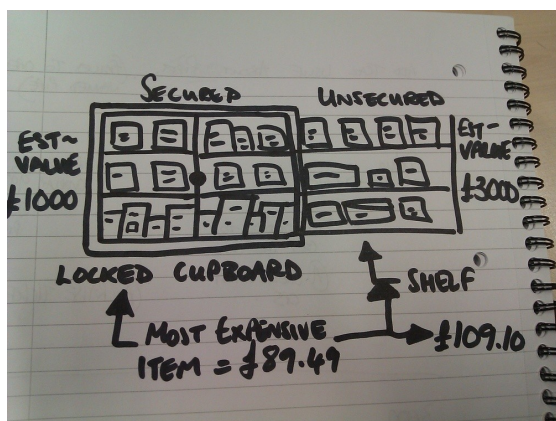 SECURED
UNSECURED
EST~
VALUE
£1000
EST~
VALUE
£3000
LOCKED CUPBOARD
SHELF
MOST EXPENSIVE
ITEM = £89.49
£109.10